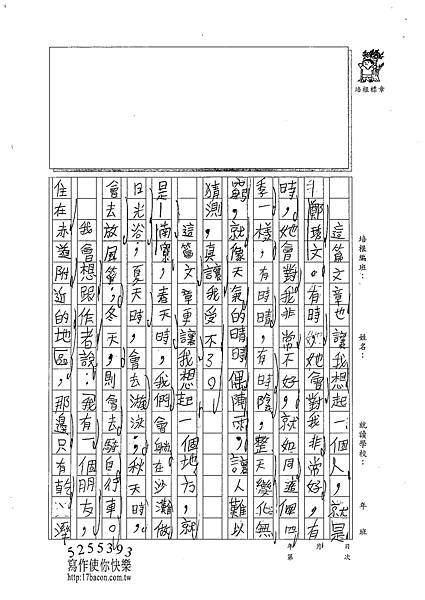 培根標章
培根編班：
姓名：
就讀學校：
年 班
年 月 日
第 次
這篇文章也讓我想起一個人，就是
鄭 文。有時她會對我非常好，有
時，她會對我非常不好，就如同這個四
季一樣，有時晴，有時陰，整天變化無
窮，就像天氣的晴時偶陣雨，讓人難以
猜測，真讓我受不了。
這篇文章更讓我想起一個地方，就
是 ，春天時，我們會躺在沙灘做
日光浴；夏天時，會去游泳；秋天時，
會去放風箏，冬天，則會去騎自行車。
我會想跟作者說：「我有一個朋友，
住在赤道附近的地區，那邊只有乾、溼
5255393
寫作使你快樂
http://17bacon.com.tw